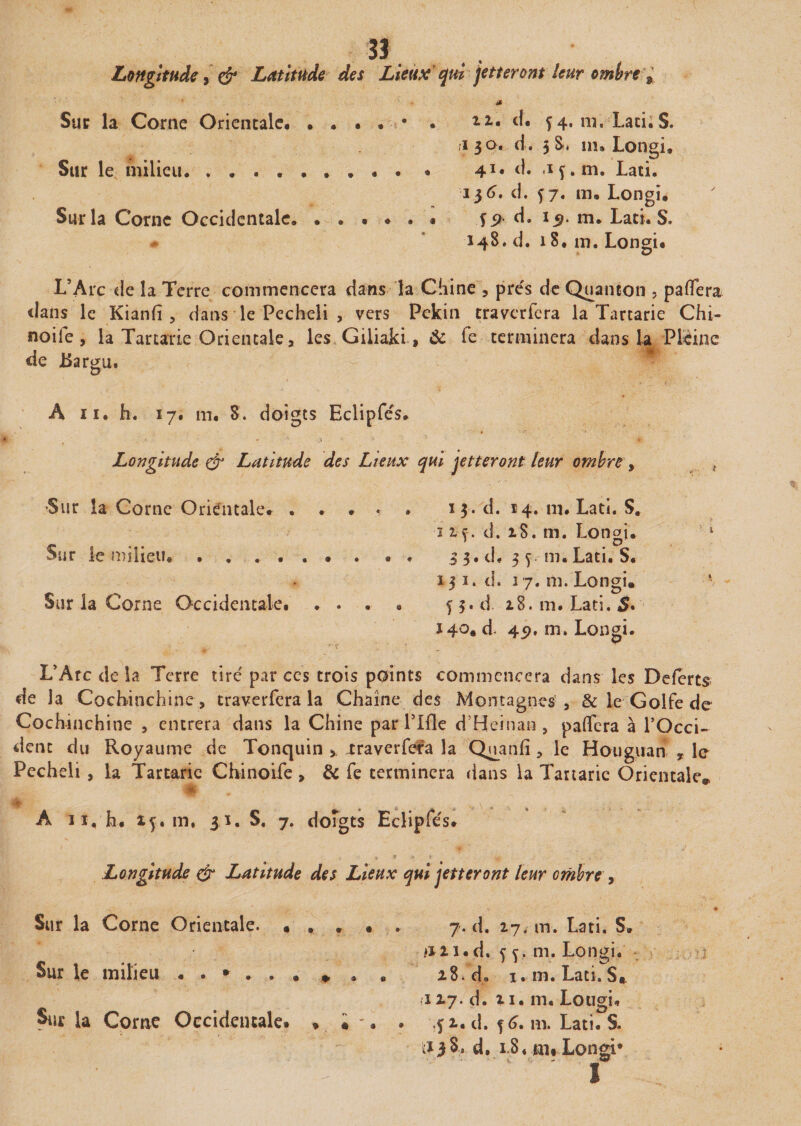 33
Longitude, & Latitude des Lieux qui jetteront leur ombre,
Sur la Corne Orientale. . . . . . . 22. d. 54. m. Lati. S.
130. d. 38. m. Longi.
Sur le milieu. . . . . . . . . . . 41. d. 15. m. Lati.
136. d. 57. m. Longi.
Sur la Corne Occidentale. . . . . . . 59. d. 19. m. Lati. S.
148. d. 18. m. Longi.
L'Arc de la Terre commencera dans la Chine, prés de Quanton, passera
dans le Kiansi, dans le Pecheli, vers Pekin traversera la Tartarie Chi-
noise, la Tartarie Orientale, les Giliaki, & se terminera dans la Pleine
de Bargu.
A 11. h. 17. m. 8. doigts Eclipsés.
Longitude & Latitude des Lieux qui jetteront leur ombre,
Sur la Corne Orientale. . . . . . 13. d. 14. m. Lati. S.
125. d. 28. m. Longi.
Sur le milieu. . . . . . . . . . 33. d. 35. m. Lati. S.
131. d. 17. m. Longi.
Sur la Corne Occidentale. . . . . 53. d. 28. m. Lati. S.
140. d. 49. m. Longi.
L'Arc de la Terre tiré par ces trois points commencera dans les Deserts
de la Cochinchine, traversera la Chaîne des Montagnes, & le Golfe de
Cochinchine, entrera dans la Chine par l'Isle d'Heinan, passera à l'Occi-
dent du Royaume de Tonquin, traversera la Quansi, le Houguan, le
Pecheli, la Tartarie Chinoise, & se terminera dans la Tartarie Orientale.
A 11. h. 25. m. 31. S. 7. doigts Eclipsés.
Longitude & Latitude des Lieux qui jetteront leur ombre,
Sur la Corne Orientale. . . . . . 7. d. 27. m. Lati. S.
121. d. 55. m. Longi.
Sur le milieu . . . . . . . . . 28. d. 1. m. Lati. S.
127. d. 21. m. Lougi.
Sur la Corne Occidentale. . . . . 52. d. 56. m. Lati. S.
138. d. 18. m. Longi.
I